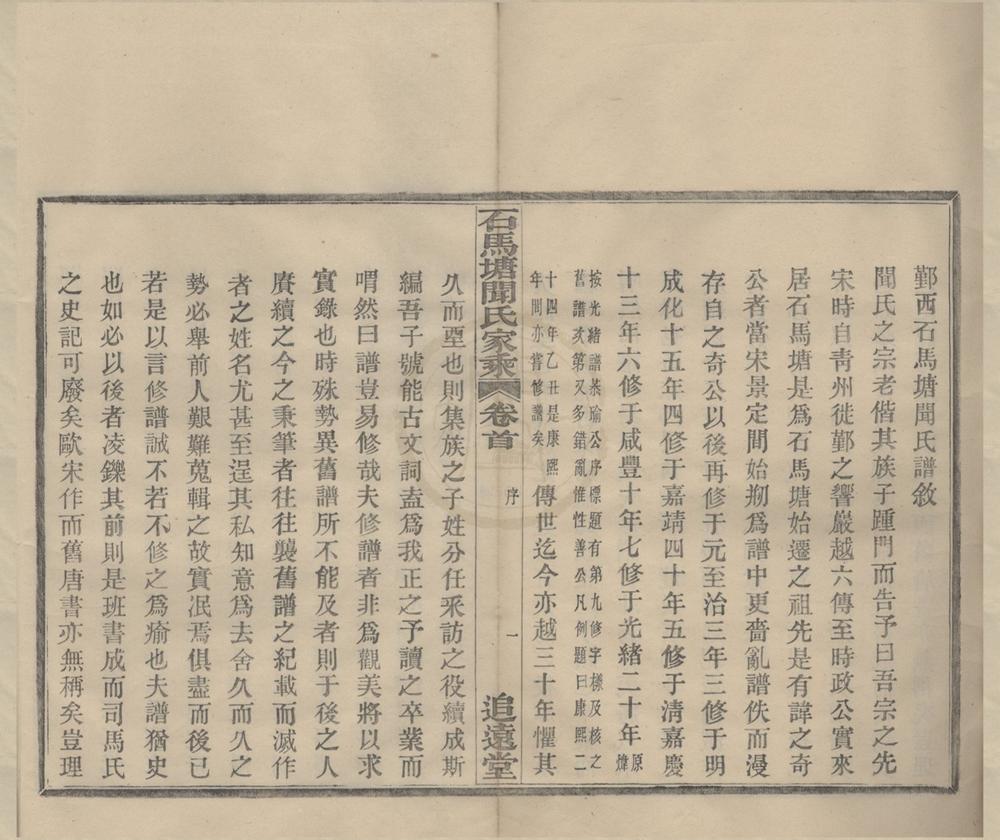 鄞西石馬塘聞氏譜敘
聞氏之宗老偕其族子踵門而告予曰吾宗之先
宋時自靑州徙鄞之響巖越六傳至時政公實來
居石馬塘是爲石馬塘始遷之祖先是有諱之奇
公者當宋景定間始剙爲譜中更喪亂譜佚而漫
存自之奇公以後再修于元至治三年三修于明
成化十五年四修于嘉靖四十年五修于淸嘉慶
十三年六修于咸豐十年七修于光緒二十年原煒
按光緒譜棻瑜公序標題有第九修字樣及核之
舊譜㳄第又多錯亂惟性善公凡例題曰康熙二
十四年乙丑是康熙
年間亦嘗修譜矣
傳世迄今亦越三十年懼其
石馬塘聞氏家乘
卷首
序
一
追遠堂
久而堊也則集族之子姓分任釆訪之役續成斯
編吾子號能古文詞盍爲我正之予讀之卒業而
喟然曰譜豈易修哉夫修譜者非爲觀美將以求
實錄也時殊勢異舊譜所不能及者則于後之人
賡續之今之秉筆者往往襲舊譜之紀載而滅作
者之姓名尤甚至逞其私知意爲去舍久而久之
勢必舉前人艱難蒐輯之故實泯焉俱盡而後已
若是以言修譜誠不若不修之爲瘉也夫譜猶史
也如必以後者凌鑠其前則是班書成而司馬氏
之史記可廢矣歐宋作而舊唐書亦無稱矣豈理